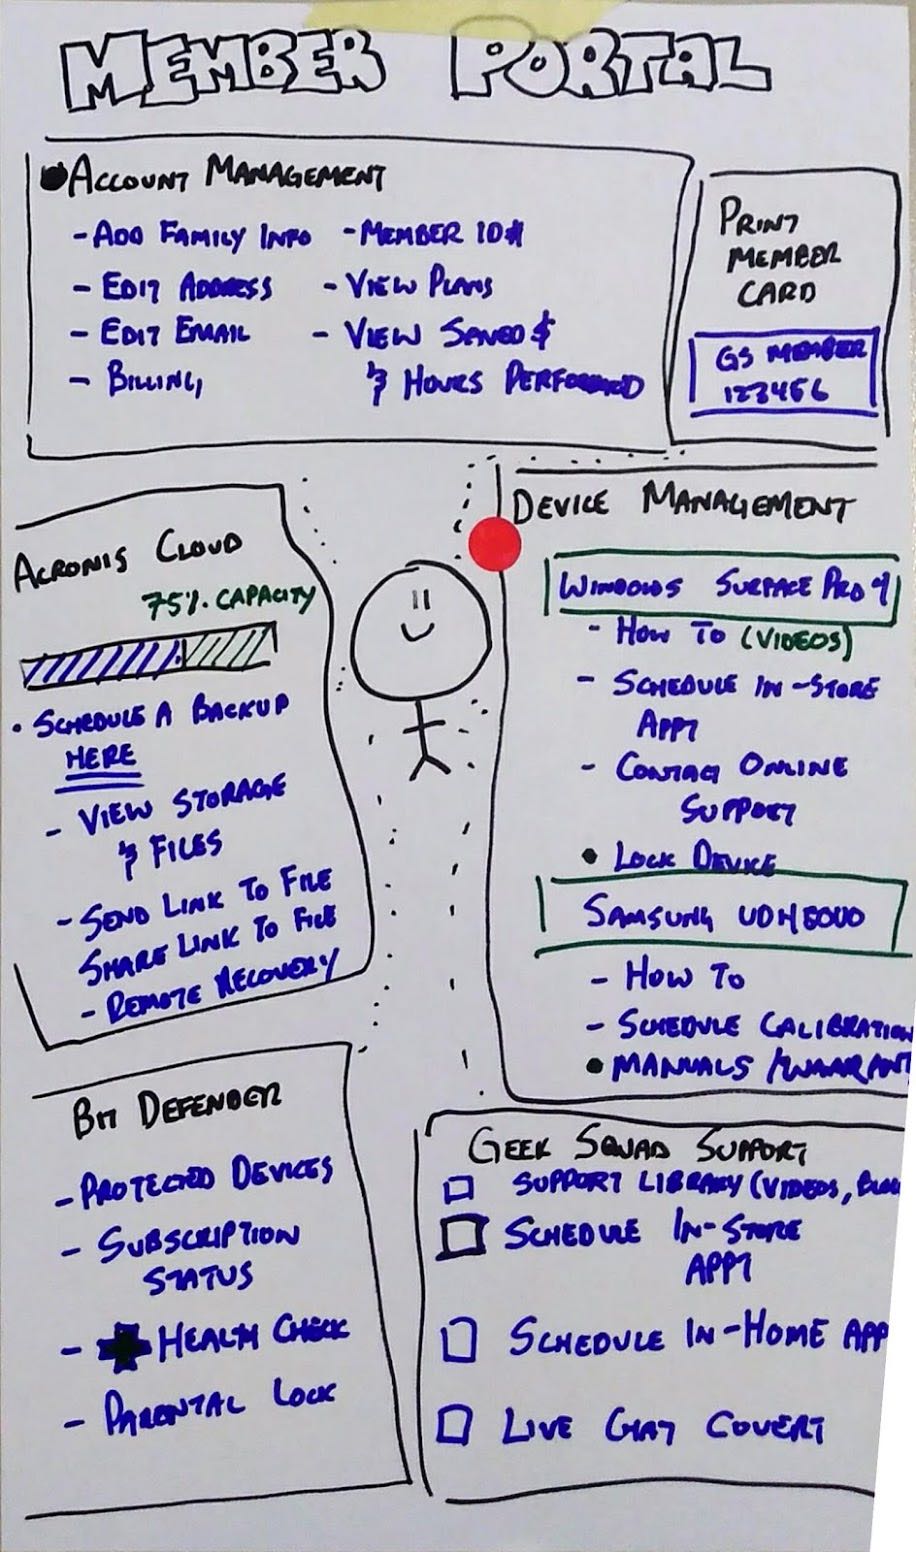 MEMBER PORTAL
ACCOUNT MANAGEMENT
- ADD FAMILY INFO
- EDIT ADDRESS
- EDIT EMAIL
- BILLING
- MEMBER ID#
- VIEW PLANS
- VIEW SAVED $
& HOURS PERFORMED
PRINT
MEMBER
CARD
GS MEMBER
123456
ACRONIS CLOUD
75% CAPACITY
• SCHEDULE A BACKUP
HERE
- VIEW STORAGE
& FILES
- SEND LINK TO FILE
SHARE LINK TO FILE
- REMOTE RECOVERY
DEVICE MANAGEMENT
WINDOWS SURFACE PRO 4
- HOW TO (VIDEOS)
- SCHEDULE IN-STORE
APPT
- CONTACT ONLINE
SUPPORT
• LOCK DEVICE
SAMSUNG
- HOW TO
- SCHEDULE CALIBRATION
• MANUALS / WAARANT
BIT DEFENDER
- PROTECTED DEVICES
- SUBSCRIPTION
STATUS
- HEALTH CHECK
- PARENTAL LOCK
GEEK SQUAD SUPPORT
SUPPORT LIBRARY (VIDEOS,
SCHEDULE IN-STORE
APPT
SCHEDULE IN-HOME APP
LIVE CHAT COVERT